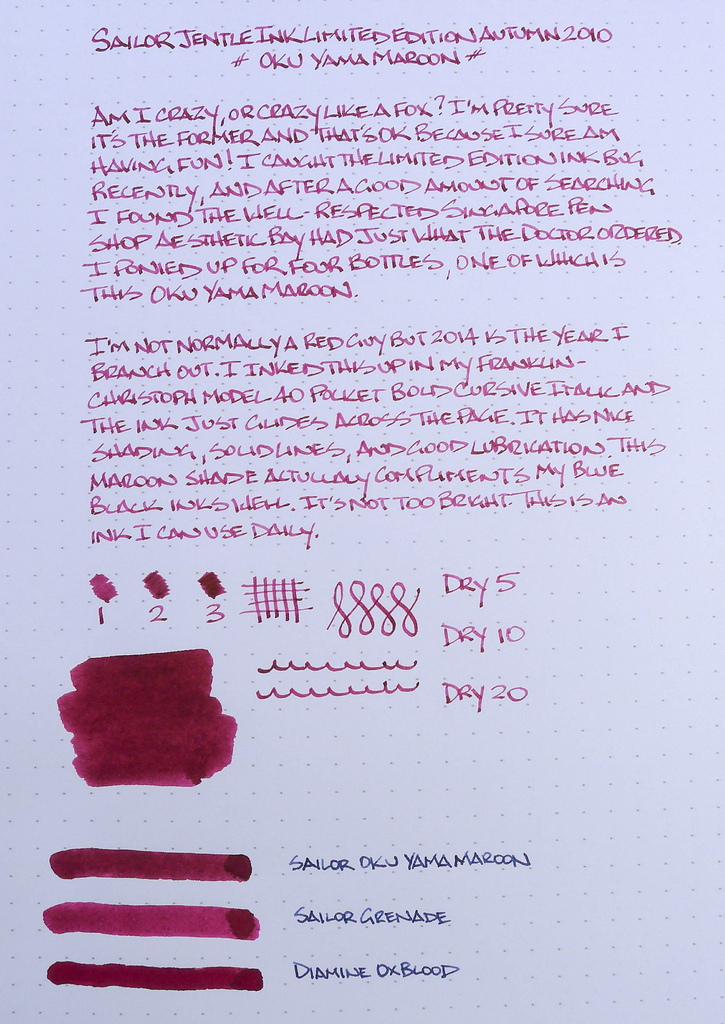 SAILOR JENTLE INK LIMITED EDITION AUTUMN 2010
# OKU YAMA MAROON #
AM I CRAZY, OR CRAZY LIKE A FOX? I'M PRETTY SURE
IT'S THE FORMER AND THAT'S OK BECAUSE I SURE AM
HAVING FUN! I CAUGHT THE LIMITED EDITION INK BUG
RECENTLY, AND AFTER A GOOD AMOUNT OF SEARCHING
I FOUND THE WELL-RESPECTED SINGAPORE PEN
SHOP AESTHETIC BAY HAD JUST WHAT THE DOCTOR ORDERED.
I PONIED UP FOR FOUR BOTTLES, ONE OF WHICH IS
THIS OKU YAMA MAROON.
I'M NOT NORMALLY A RED GUY BUT 2014 IS THE YEAR I
BRANCH OUT. I INKED THIS UP IN MY FRANKLIN-
CHRISTOPH MODEL 40 POCKET BOLD CURSIVE ITALIC AND
THE INK JUST GLIDES ACROSS THE PAGE. IT HAS NICE
SHADING, SOLID LINES, AND GOOD LUBRICATION. THIS
MAROON SHADE ACTULLALY COMPLIMENTS MY BLUE
BLACK INKS WELL. IT'S NOT TOO BRIGHT. THIS IS AN
INK I CAN USE DAILY.
1 2 3
DRY 5
DRY 10
DRY 20
SAILOR OKU YAMA MAROON
SAILOR GRENADE
DIAMINE OXBLOOD